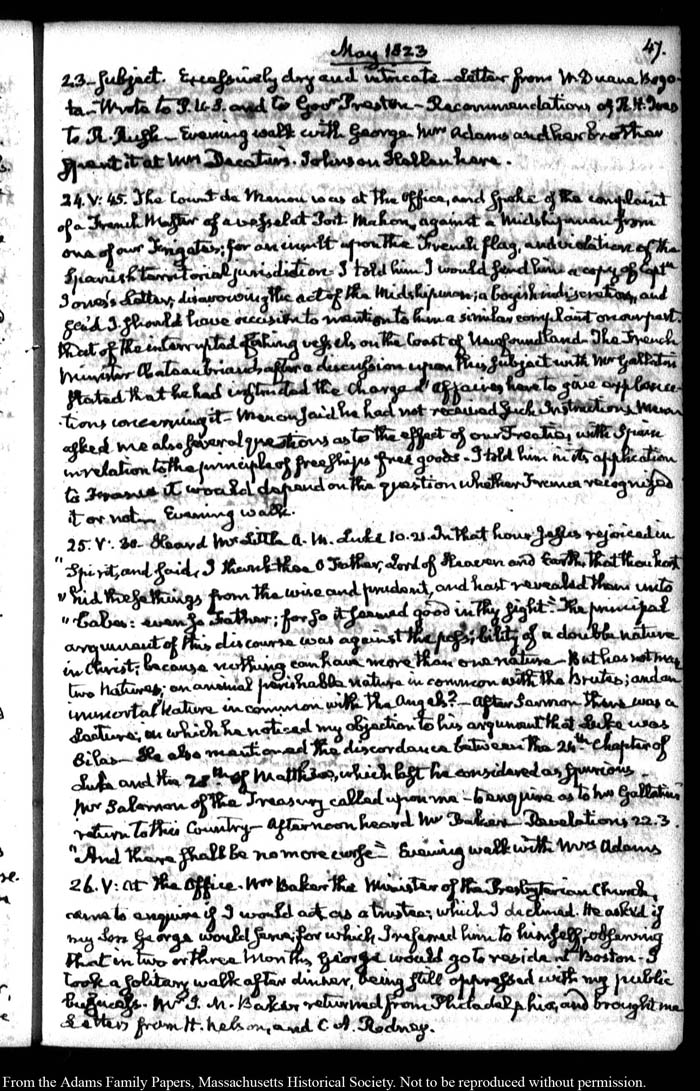 May 1823
47.
23 Subject. Excessively dry and intricate - Letter from W. Duane Bogo-
ta - Wrote to P.U.S. and to Govr Preston - Recommendations of R. H. Ives
to R. Rush - Evening walk with George Mrs Adams and her brother
spent it at Mrs Decatur's. Johnson Hellen here.
24. V: 45. The Count de Menou was at the office, and spoke of the complaint
of a French Master of a vessel at Port Mahon, against a Midshipman from
one of our Frigates; for an insult upon the French flag, and violation of the
Spanish territorial jurisdiction. I told him I would send him a copy of Captn
Jones's Letter; disavowing the act of the Midshipman; a boyish indiscretion, and
said I should have occasion to mention to him a similar complaint on our part.
that of the interrupted fishing vessels on the Coast of Newfoundland - The French
Minister Chateaubriand, after a discussion upon this subject with Mr Gallatin
stated that he had instructed the Charge d'Affaires here to give explana-
tions concerning it - Menou said he had not received such Instructions. Menou
asked me also several questions as to the effect of our Treaties, with Spain
in relation to the principle of free ships free goods. I told him in its application
to France it would depend on the question whether France recognized
it or not. Evening walk.
25. V: 30. Heard Mr Little A. M. Luke 10. 21. In that hour Jesus rejoiced in
"Spirit, and said, I thank thee O Father, Lord of Heaven and Earth, that thou hast
"hid these things from the wise and prudent, and hast revealed them unto
"babes: even so Father; for so it seemed good in thy sight". The principal
argument of this discourse was against the possibility of a double nature
in Christ; because nothing can have more than one nature - But has not man
two Natures; an animal perishable nature in common with the Brutes; and an
immortal Nature in common with the Angels? - After Sermon there was a
Lecture, in which he noticed my objection to his argument that Luke was
Silas - He also mentioned the discordance between the 24th Chapter of
Luke and the 28th of Matthew, which last he considered as spurious.
Mr Salomon of the Treasury called upon me - to enquire as to Mr Gallatin's
return to this Country - Afternoon heard Mr Baker Revelations 22. 3.
"And there shall be no more curse" Evening walk with Mrs Adams
26. V: At the Office. Mr Baker the Minister of the Presbyterian Church,
came to enquire if I would act as a trustee; which I declined. He asked if
my Son George would serve; for which I referred him to himself; observing
that in two or three Months, George would go to reside at Boston - I
took a solitary walk after dinner, being still oppressed with my public
business. Mr J. M. Baker returned from Philadelphia, and brought me
Letters from H. Nelson, and C. A. Rodney.
From the Adams Family Papers, Massachusetts Historical Society. Not to be reproduced without permission.